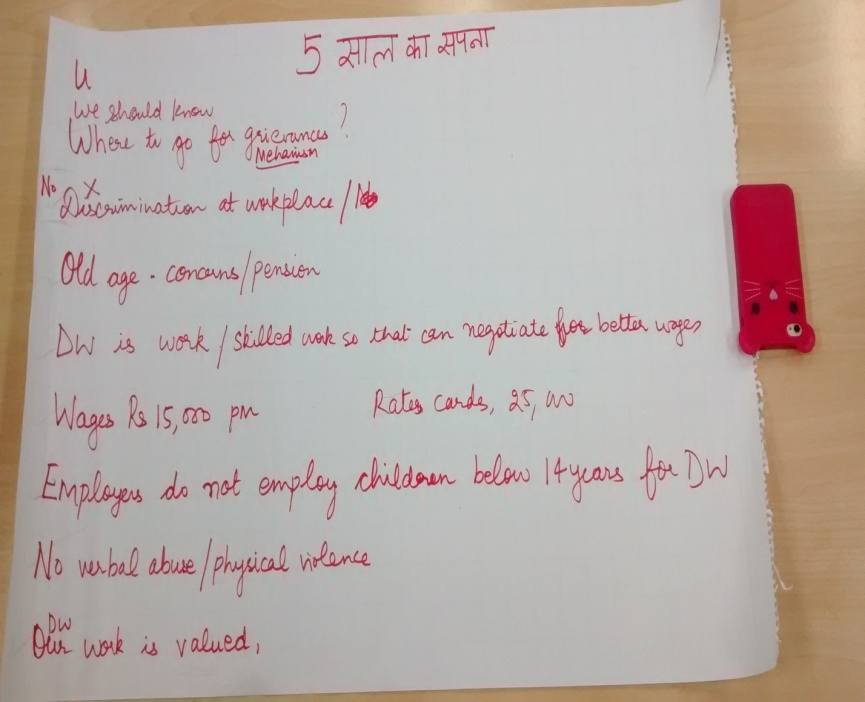 5 साल का सपना
U
We should know
Where to go for grievances ?
Mehanism
No X
Discrimination at workplace /
Old age - concerns/pension
DW is work / skilled work so that can negotiate for better wages
Wages Rs 15,000 pm Rates cards, 25,000
Employers do not employ children below 14 years for DW
No verbal abuse/physical violence
DW
Our work is valued,